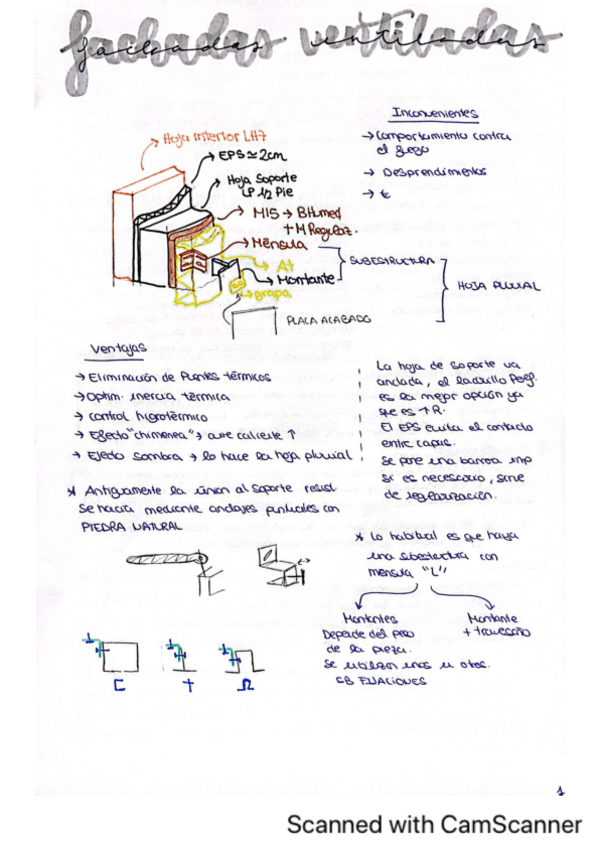 fachadas ventiladas
Inconvenientes
→ Comportamiento contra
el fuego
→ Desprendimientos
→ €
Hoja interior LH7
EPS ≃ 2cm
Hoja Soporte
LP 1/2 Pie
MIS → Bitumed
+ M Regulaz.
Ménsula
AT
Montante
grapa
SUBESTRUCTURA
HOJA PLUVIAL
PLACA ACABADO
Ventajas
→ Eliminación de Puentes térmicos
→ Optim. inercia térmica
→ Control higrotérmico
→ Efecto "chimenea" → aire caliente ↑
→ Efecto Sombra → lo hace la hoja pluvial
* Antiguamente la unión al soporte resist
se hacía mediante anclajes puntuales con
PIEDRA NATURAL
La hoja de soporte va
anclada, el ladrillo Perf.
es la mejor opción ya
que es + R.
El EPS evita el contacto
entre capas.
Se pone una barrera imp
si es necesario, sirve
de regularización.
* Lo habitual es que haya
una subestructura con
ménsula "L"
Montantes
Depende del peso
de la pieza.
Se utilizan unos u otros.
Montante
+ travesaño
FIJACIONES
C T Ω
1
Scanned with CamScanner